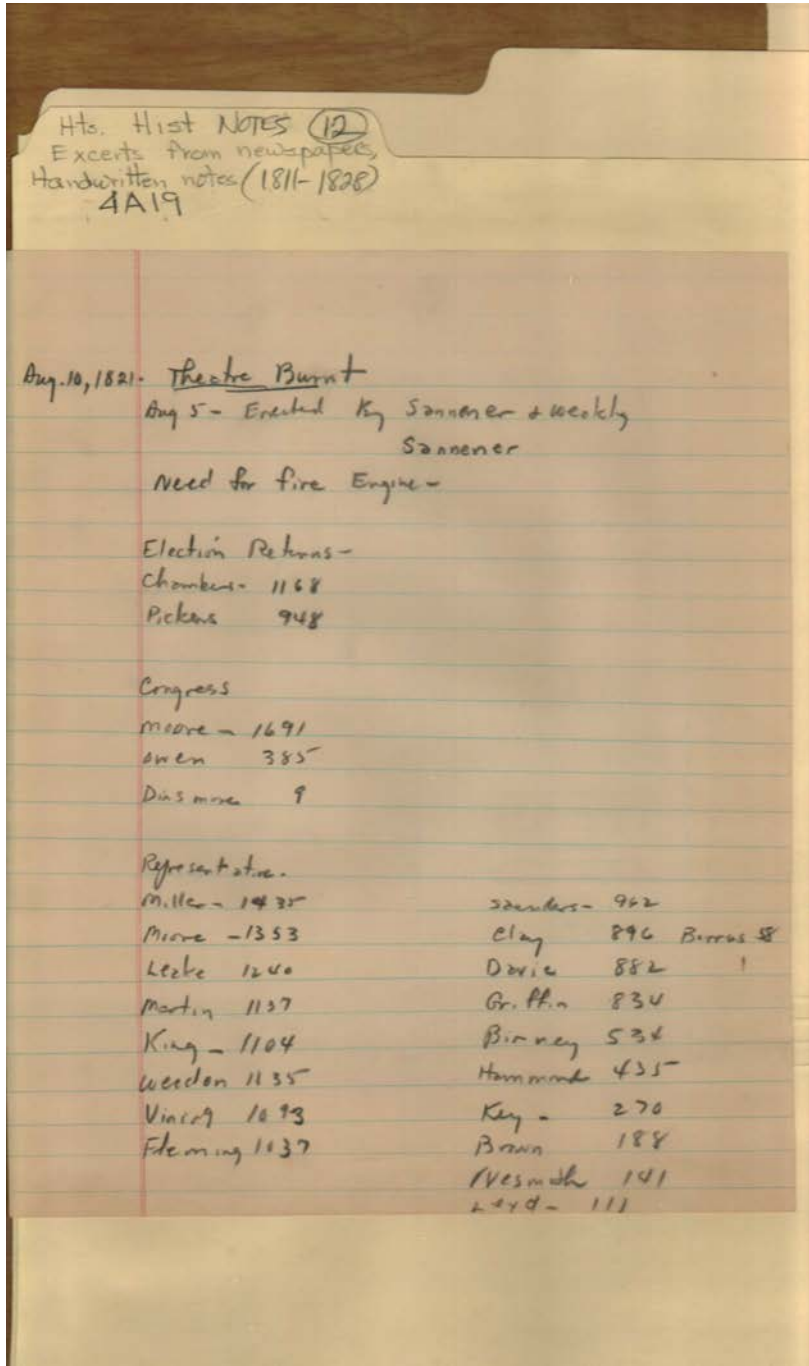 Hts. Hist NOTES (12)
Excerts from newspapers,
Handwritten notes (1811-1828)
4A19
Aug. 10, 1821. Theatre Burnt
Aug 5 - Erected by Sannener & weekly
Sannener
Need for fire Engine -
Election Returns -
Chambers - 1168
Pickens 948
Congress
Moore - 1691
Owen 385
Dinsmore 9
Representative.
Miller - 1435
Moore - 1353
Leake 1240
Martin 1137
King - 1104
Weedon 1135
Vining 1093
Fleming 1037
Saunders - 962
Clay 896 Burrus 58
Davie 882
Griffin 834
Birney 534
Hammond 435
Key - 270
Brown 188
Nesmith 141
111